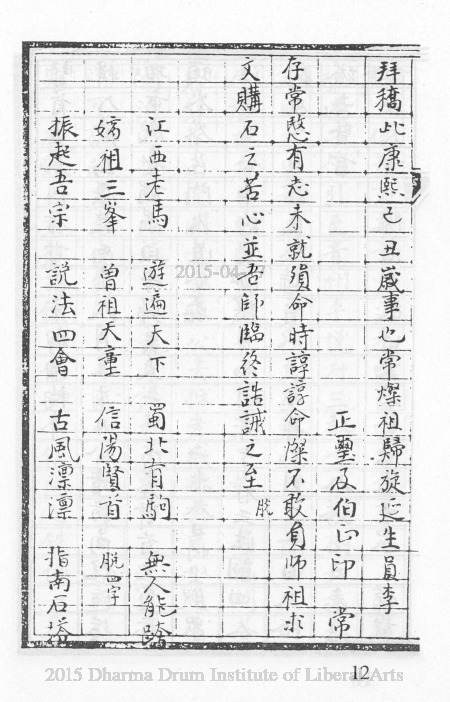 拜稿此康熙己丑歲事也常燦祖歸旋延生員李
正璽及伯正印常
存常愍有志未就殞命時諄諄命燦不敢負師祖求
文購石之苦心並吾師臨終誥誡之至 脱
江西老馬 遊遍天下 蜀北有駒 無人能踏
嫡祖三峯 曽祖天童 信陽賢首 脱四字
振起吾宗 説法四會 古風凛凛 指南石塔
2015-04-
12
2015 Dharma Drum Institute of Liberal Arts